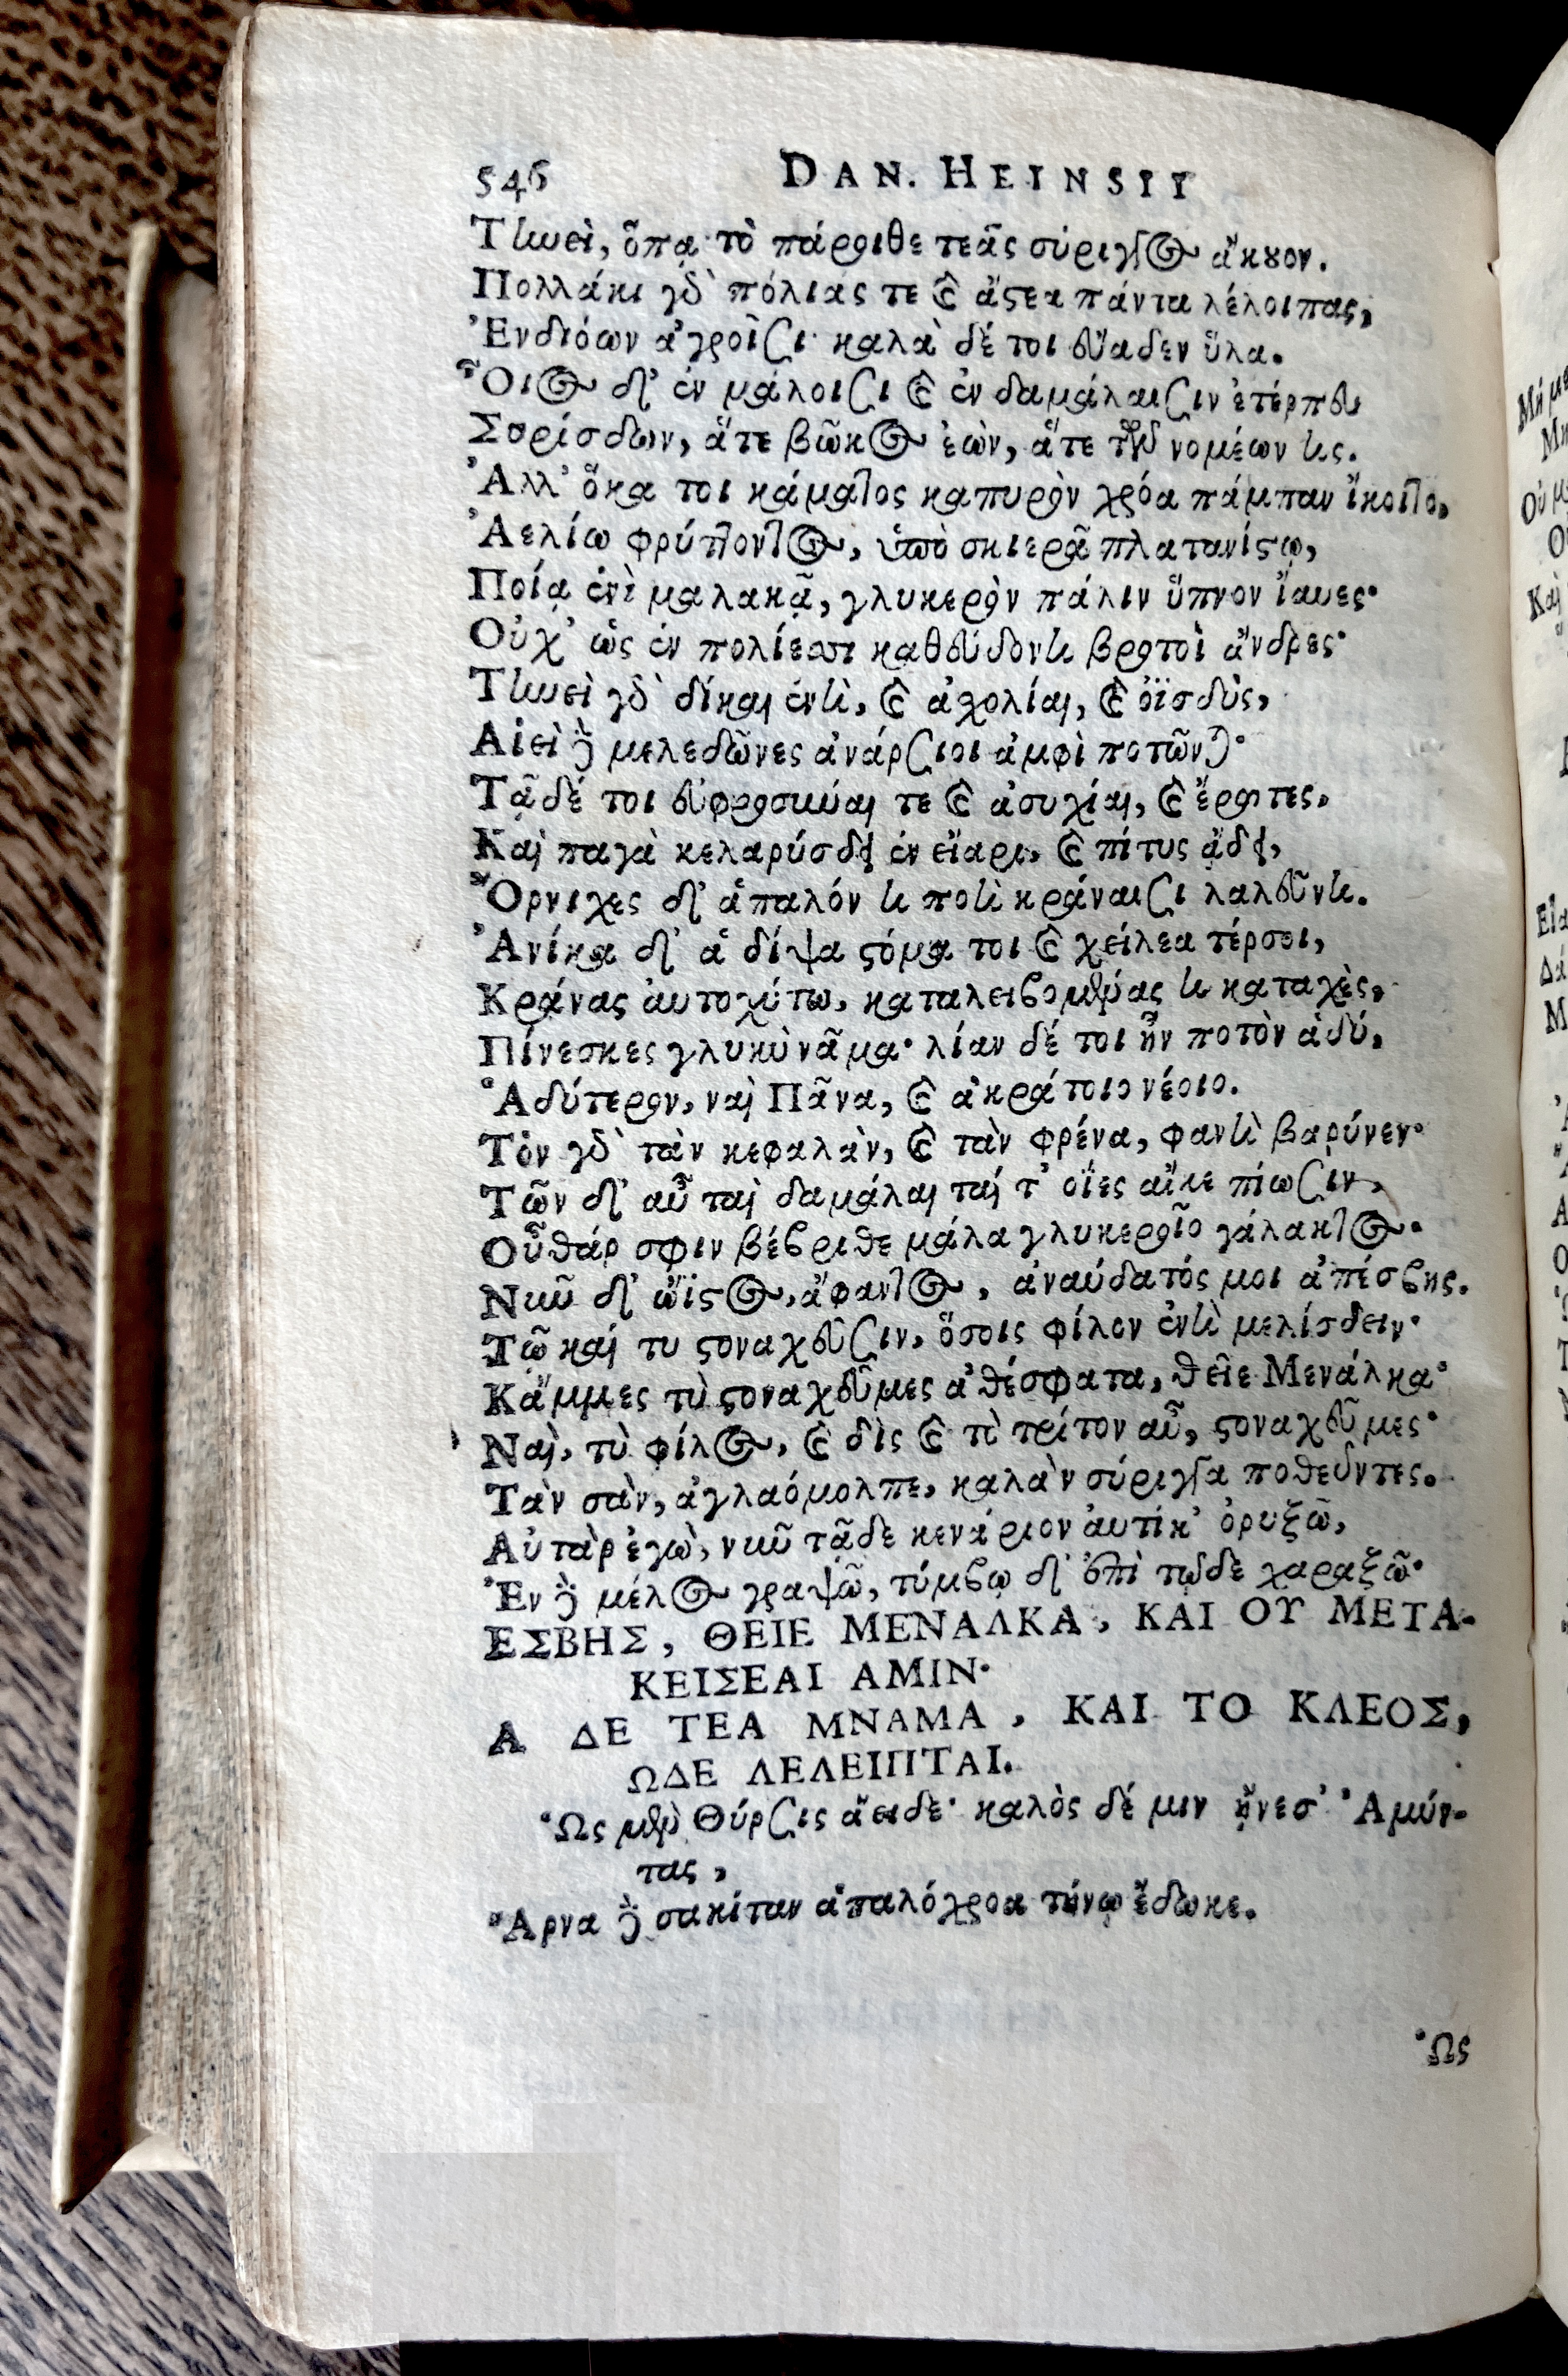 546 DAN. HEINSII
Τηνεὶ, ὅπᾳ τὸ πάροιθε τεᾶς σύριγγος ἄκουον.
Πολλάκι γὰρ πόλιάς τε καὶ ἄστεα πάντα λέλοιπας,
Ἐνδιόων ἀγροῖσι· καλὰ δέ τοι εὔαδεν ὕλα.
Οἶος δ' ἐν μάλοισι καὶ ἐν δαμάλαισιν ἐτέρπευ
Συρίσδων, ἅτε βῶκος ἐὼν, ἅτε τῶν νομέων τις.
Ἀλλ' ὅκα τοι κάματος καπυρὸν χρόα πάμπαν ἵκοιτο,
Ἀελίω φρύττοντος, ὑπὸ σκιερᾷ πλατανίστῳ,
Ποίᾳ ἐνὶ μαλακᾷ, γλυκερὸν πάλιν ὕπνον ἴαυες·
Οὐχ' ὡς ἐν πολίεσσι καθεύδοντι βροτοὶ ἄνδρες·
Τηνεὶ γὰρ δίκαι ἐντὶ, καὶ ἀσχολίαι, καὶ ὀϊσδὺς,
Αἰεὶ δὲ μελεδῶνες ἀνάρσιοι ἀμφὶ ποτῶνται·
Τᾷδέ τοι εὐφροσύναι τε καὶ ἁσυχίαι, καὶ ἔρωτες,
Καὶ παγὰ κελαρύσδει ἐν εἴαρι, καὶ πίτυς ᾄδει,
Ὄρνιχες δ' ἁπαλόν τι ποτὶ κράναισι λαλεῦντι.
Ἁνίκα δ' ἁ δίψα στόμα τοι καὶ χείλεα τέρσοι,
Κράνας αὐτοχύτω, καταλειβομένας τι καταχὲς,
Πίνεσκες γλυκὺ νᾶμα· λίαν δέ τοι ἦν ποτὸν ἁδύ,
Ἁδύτερον, ναὶ Πᾶνα, καὶ ἀκράτοιο νέοιο.
Τὸν γὰρ τὰν κεφαλὰν, καὶ τὰν φρένα, φαντὶ βαρύνεν·
Τῶν δ' αὖ ταὶ δαμάλαι ταί τ' οἴιες αἴκε πίωσιν,
Οὖθάρ σφιν βέβριθε μάλα γλυκεροῖο γάλακτος·
Νῦν δ' ὤϊστος, ἄφαντος, ἀναύδατός μοι ἀπέσβης.
Τῶ καί τυ στοναχεῦσιν, ὅσοις φίλον ἐντὶ μελίσδειν·
Κἄμμες τὺ στοναχεῦμες ἀθέσφατα, θεῖε Μενάλκα·
Ναὶ, τὺ φίλος, καὶ δὶς καὶ τὸ τρίτον αὖ, στοναχεῦμες·
Τὰν σὰν, ἀγλαόμολπε, καλὰν σύριγγα ποθεῦντες.
Αὐτὰρ ἐγὼ, νῦν τᾷδε κενάριον αὐτίκ' ὀρυξῶ,
Ἓν δὲ μέλος γραψῶ, τύμβῳ δ' ἐπὶ τῷδε χαραξῶ·
ΕΣΒΗΣ, ΘΕΙΕ ΜΕΝΑΛΚΑ, ΚΑΙ ΟΥ ΜΕΤΑ-
ΚΕΙΣΕΑΙ ΑΜΙΝ·
Α ΔΕ ΤΕΑ ΜΝΑΜΑ, ΚΑΙ ΤΟ ΚΛΕΟΣ,
ΩΔΕ ΛΕΛΕΙΠΤΑΙ.
Ὣς μὲν Θύρσις ἄειδε· καλὸς δέ μιν ᾔνεσ' Ἀμύν-
τας,
Ἄρνα δὲ σακίταν ἁπαλόχροα τήνῳ ἔδωκε.
Ὣς